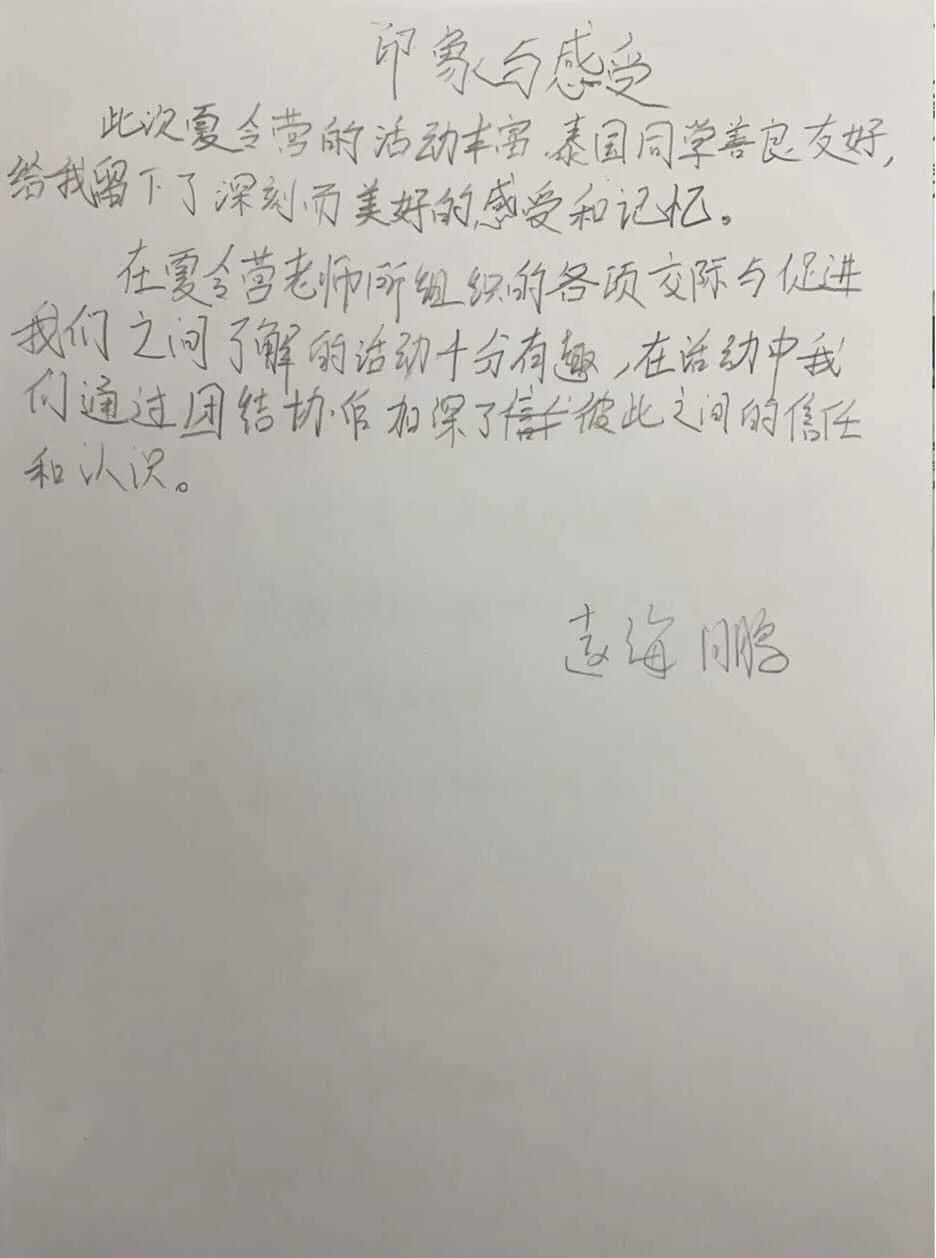 印象与感受
此次夏令营的活动丰富、泰国同学善良友好,
给我留下了深刻而美好的感受和记忆。
在夏令营老师所组织的各项交际与促进
我们之间了解的活动十分有趣,在活动中我
们通过团结协作加深了彼此之间的信任
和认识。
海 鹏